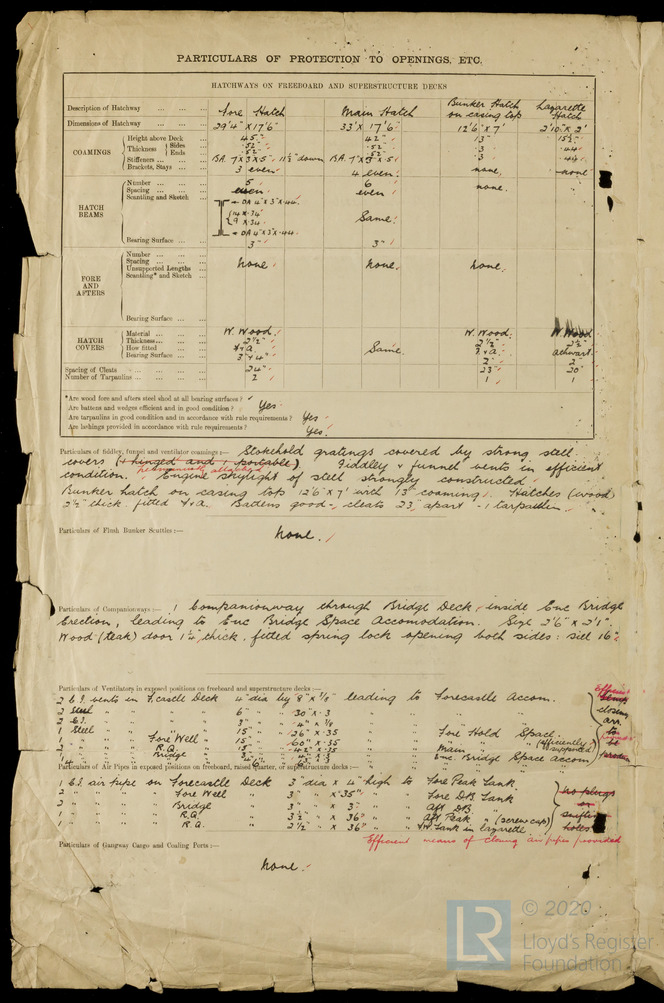 PARTICULARS OF PROTECTION TO OPENINGS, ETC.
HATCHWAYS ON FREEBOARD AND SUPERSTRUCTURE DECKS
Description of Hatchway ... Fore Hatch Main Hatch Bunker Hatch on casing top Lazarette Hatch
Dimensions of Hatchway ... 29'4" x 17'6" 33' x 17'6" 12'6" x 7' 2'10" x 2'
COAMINGS
Height above Deck ... 45" 42" 13" 15½"
Thickness Sides ... .52 .52 .3 .44
Ends ... .52 .52 .3 .44
Stiffeners ... BA. 7 x 3 x .5 11½" down BA. 7 x 3 x .5 .3 .44
Brackets, Stays ... 3 even 4 even none none
HATCH BEAMS
Number ... 5 6 none.
Spacing ... even even
Scantling and Sketch ... DA 4" x 3" x .44 Same
14 x .34
9 x .34
DA 4" x 3" x .44
Bearing Surface ... 3" 3"
FORE AND AFTERS
Number ...
Spacing ... None. None. None.
Unsupported Lengths ...
Scantling* and Sketch ...
Bearing Surface ...
HATCH COVERS
Material ... W. Wood W. Wood. W. Wood
Thickness ... 2½" Same. 2½" 2½"
How fitted ... F & A. F & A. athwart.
Bearing Surface ... 3" & 4" 2" 2"
Spacing of Cleats ... 24" 23" 20"
Number of Tarpaulins ... 2 1 1
*Are wood fore and afters steel shod at all bearing surfaces?
Are battens and wedges efficient and in good condition? Yes
Are tarpaulins in good condition and in accordance with rule requirements? Yes
Are lashings provided in accordance with rule requirements? Yes.
Particulars of fiddley, funnel and ventilator coamings :— Stokehold gratings covered by strong steel
covers (4 hinged and 1 portable). Fiddley & funnel vents in efficient
permanently attached
condition. Engine skylight of steel strongly constructed.
Bunker hatch on casing top 12'6" x 7' with 13" coaming. Hatches (wood)
2½" thick fitted F & A. Battens good, cleats 23" apart - 1 tarpaulin.
Particulars of Flush Bunker Scuttles :—
None.
Particulars of Companionways :— 1 Companionway through Bridge Deck, inside Enc Bridge
Erection, leading to Enc Bridge Space Accomodation. Size 2'6" x 2'1".
Wood (teak) door 1½" thick, fitted spring lock opening both sides: sill 16"
Particulars of Ventilators in exposed positions on freeboard and superstructure decks :—
2 C.I. vents in F'castle Deck 4" dia by 8" x ⅛" leading to Forecastle Accom.
2 Steel " " " 6" " 30" x .3 " "
2 C.I. " " " 3" " 4" x ⅛ " "
1 Steel " " " 15" " 26" x .35 " " Fore Hold Space.
1 " " Fore Well " 15" " 60" x .35 " " " " (efficiently supported)
2 " " R.Q. " 15" " 42" x .35 " " Main " "
Bridge " " " Enc. Bridge Space accom
Efficient closing arr. to be
Particulars of Air Pipes in exposed positions on freeboard, raised Quarter, or superstructure decks :—
1 C.I. air pipe on Forecastle Deck 3" dia x 4" high to Fore Peak Tank
2 " " " Fore Well " 3" " x .35" " " Fore D.B. Tank
2 " " " Bridge " 3" " x 3" " " Aft D.B. "
1 " " " R.Q. " 3½" " x 36" " " Aft Peak " (screw cap)
1 " " " R.Q. " 2½" " x 36" " " F.W. Tank in lazarette
No plugs or
holes
Efficient means of closing air pipes provided
Particulars of Gangway Cargo and Coaling Ports :—
None.
LR © 2020
Lloyd's Register
Foundation